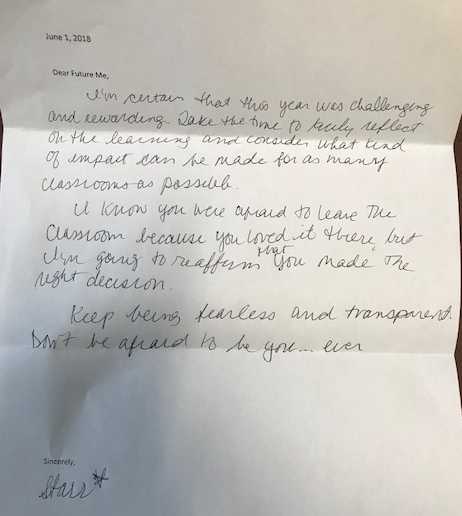 June 1, 2018
Dear Future Me,
I'm certain that this year was challenging
and rewarding. Take the time to truly reflect
on the learning and consider what kind
of impact can be made for as many
classrooms as possible.
I know you were afraid to leave the
classroom because you loved it there, but
I'm going to reaffirm that you made the
right decision.
Keep being fearless and transparent.
Don't be afraid to be you... ever
Sincerely,
Starr